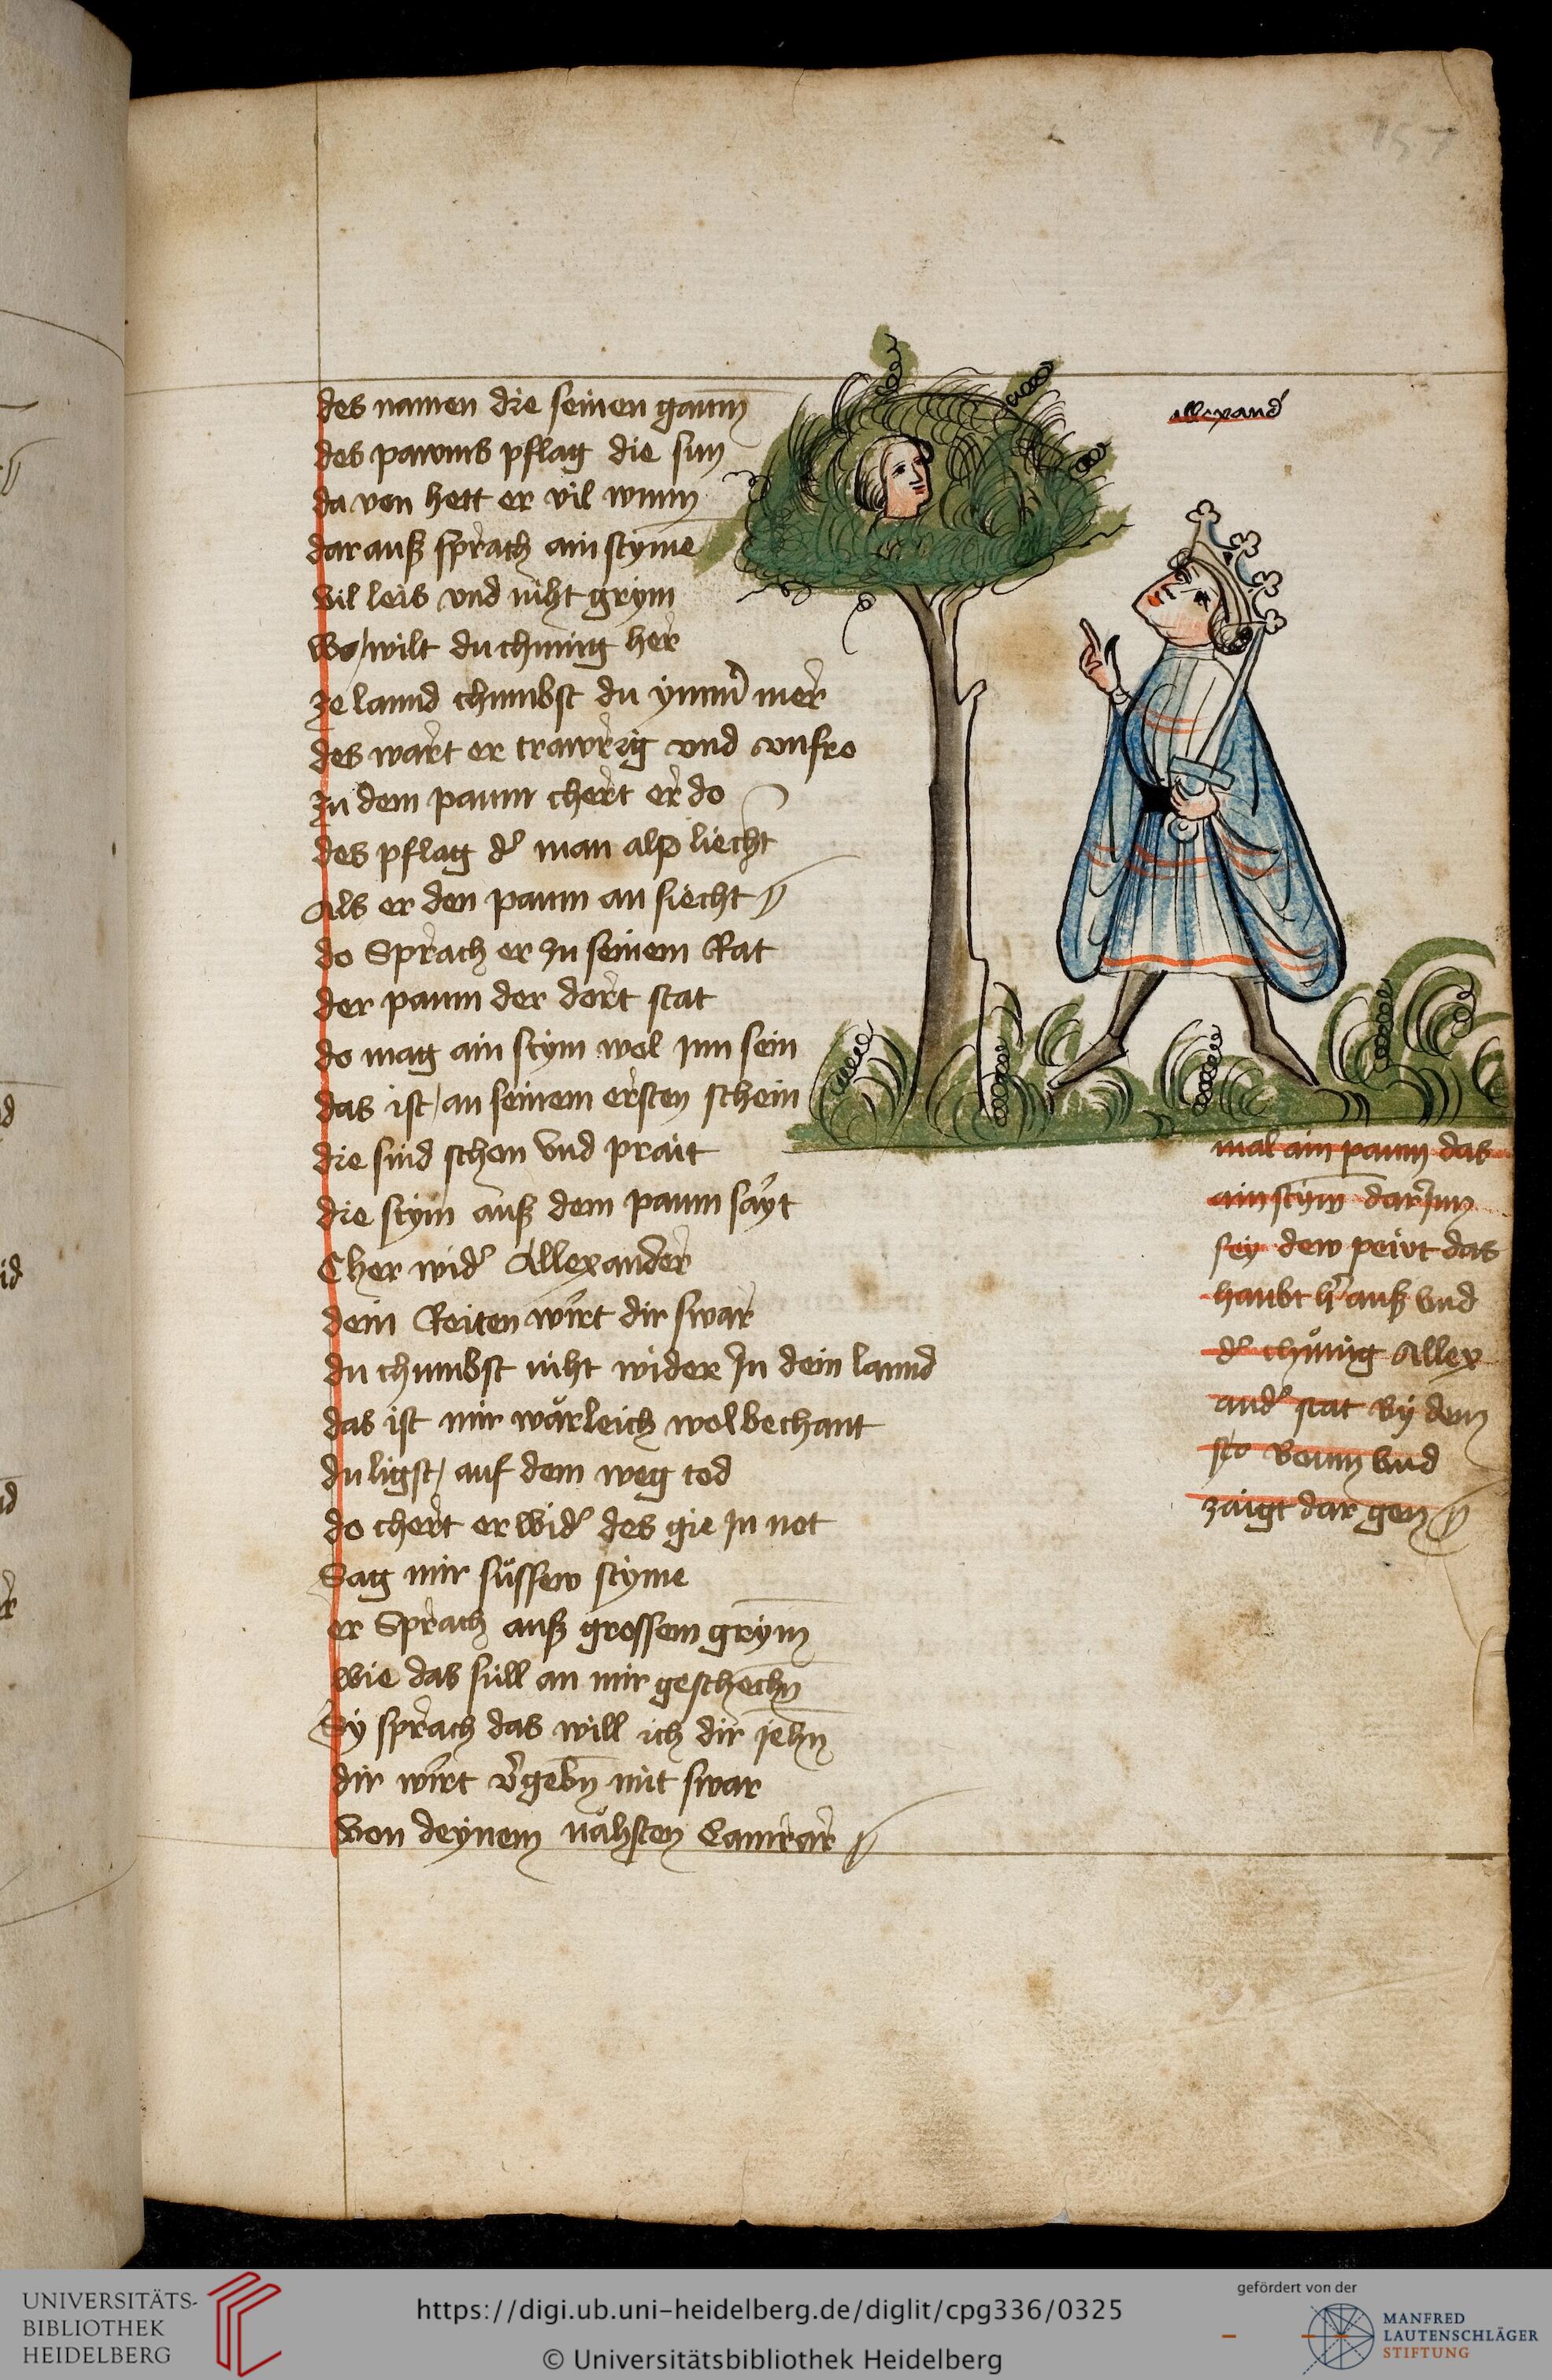 157
des namen die seinen gaum̄
des pawms pflag die sun
da von hett er vil wunn
darauß sprach ain styme
vil leis vnd niht grym
wo/wilt du chunig her
ze lannd chumbst du ymm̄ mer
des wart er trawrig vnd vnfro
zu dem paum chert er do
des pflag dͤ man also liecht
Als er den paum an siecht
do Sprach er zu seinem Rat
der paum der dort stat
do mag ain stym wol Inn sein
das ist/an seinem ersten schein
die sind schon vnd prait
die stym auß dem paum sayt
Cher wid' Allexander
dein Reiten wirt dir swar
du chumbst niht wider In dein lannd
das ist mir wårleich wol bechant
du ligst/auf dem weg tod
do chert er wid' des gie In not
Sag mir sůssew styme
er Sprach auß grossem grym
wie das sull an mir geschechn̄
Sy sprach das will ich dir jehn̄
dir wirt v'gebn̄ mit swar
von deynem nåhsten Camrar
allexand'
mal ain paum das
ain stym dar Inn
sey dew peivt das
haubt h' auß vnd
d' chůnig Allex
and' stat by dem
vnd
zaigt dar gen
UNIVERSITÄTS-
BIBLIOTHEK
HEIDELBERG
https://digi.ub.uni-heidelberg.de/diglit/cpg336/0325
© Universitätsbibliothek Heidelberg
gefördert von der
MANFRED
LAUTENSCHLÄGER
STIFTUNG